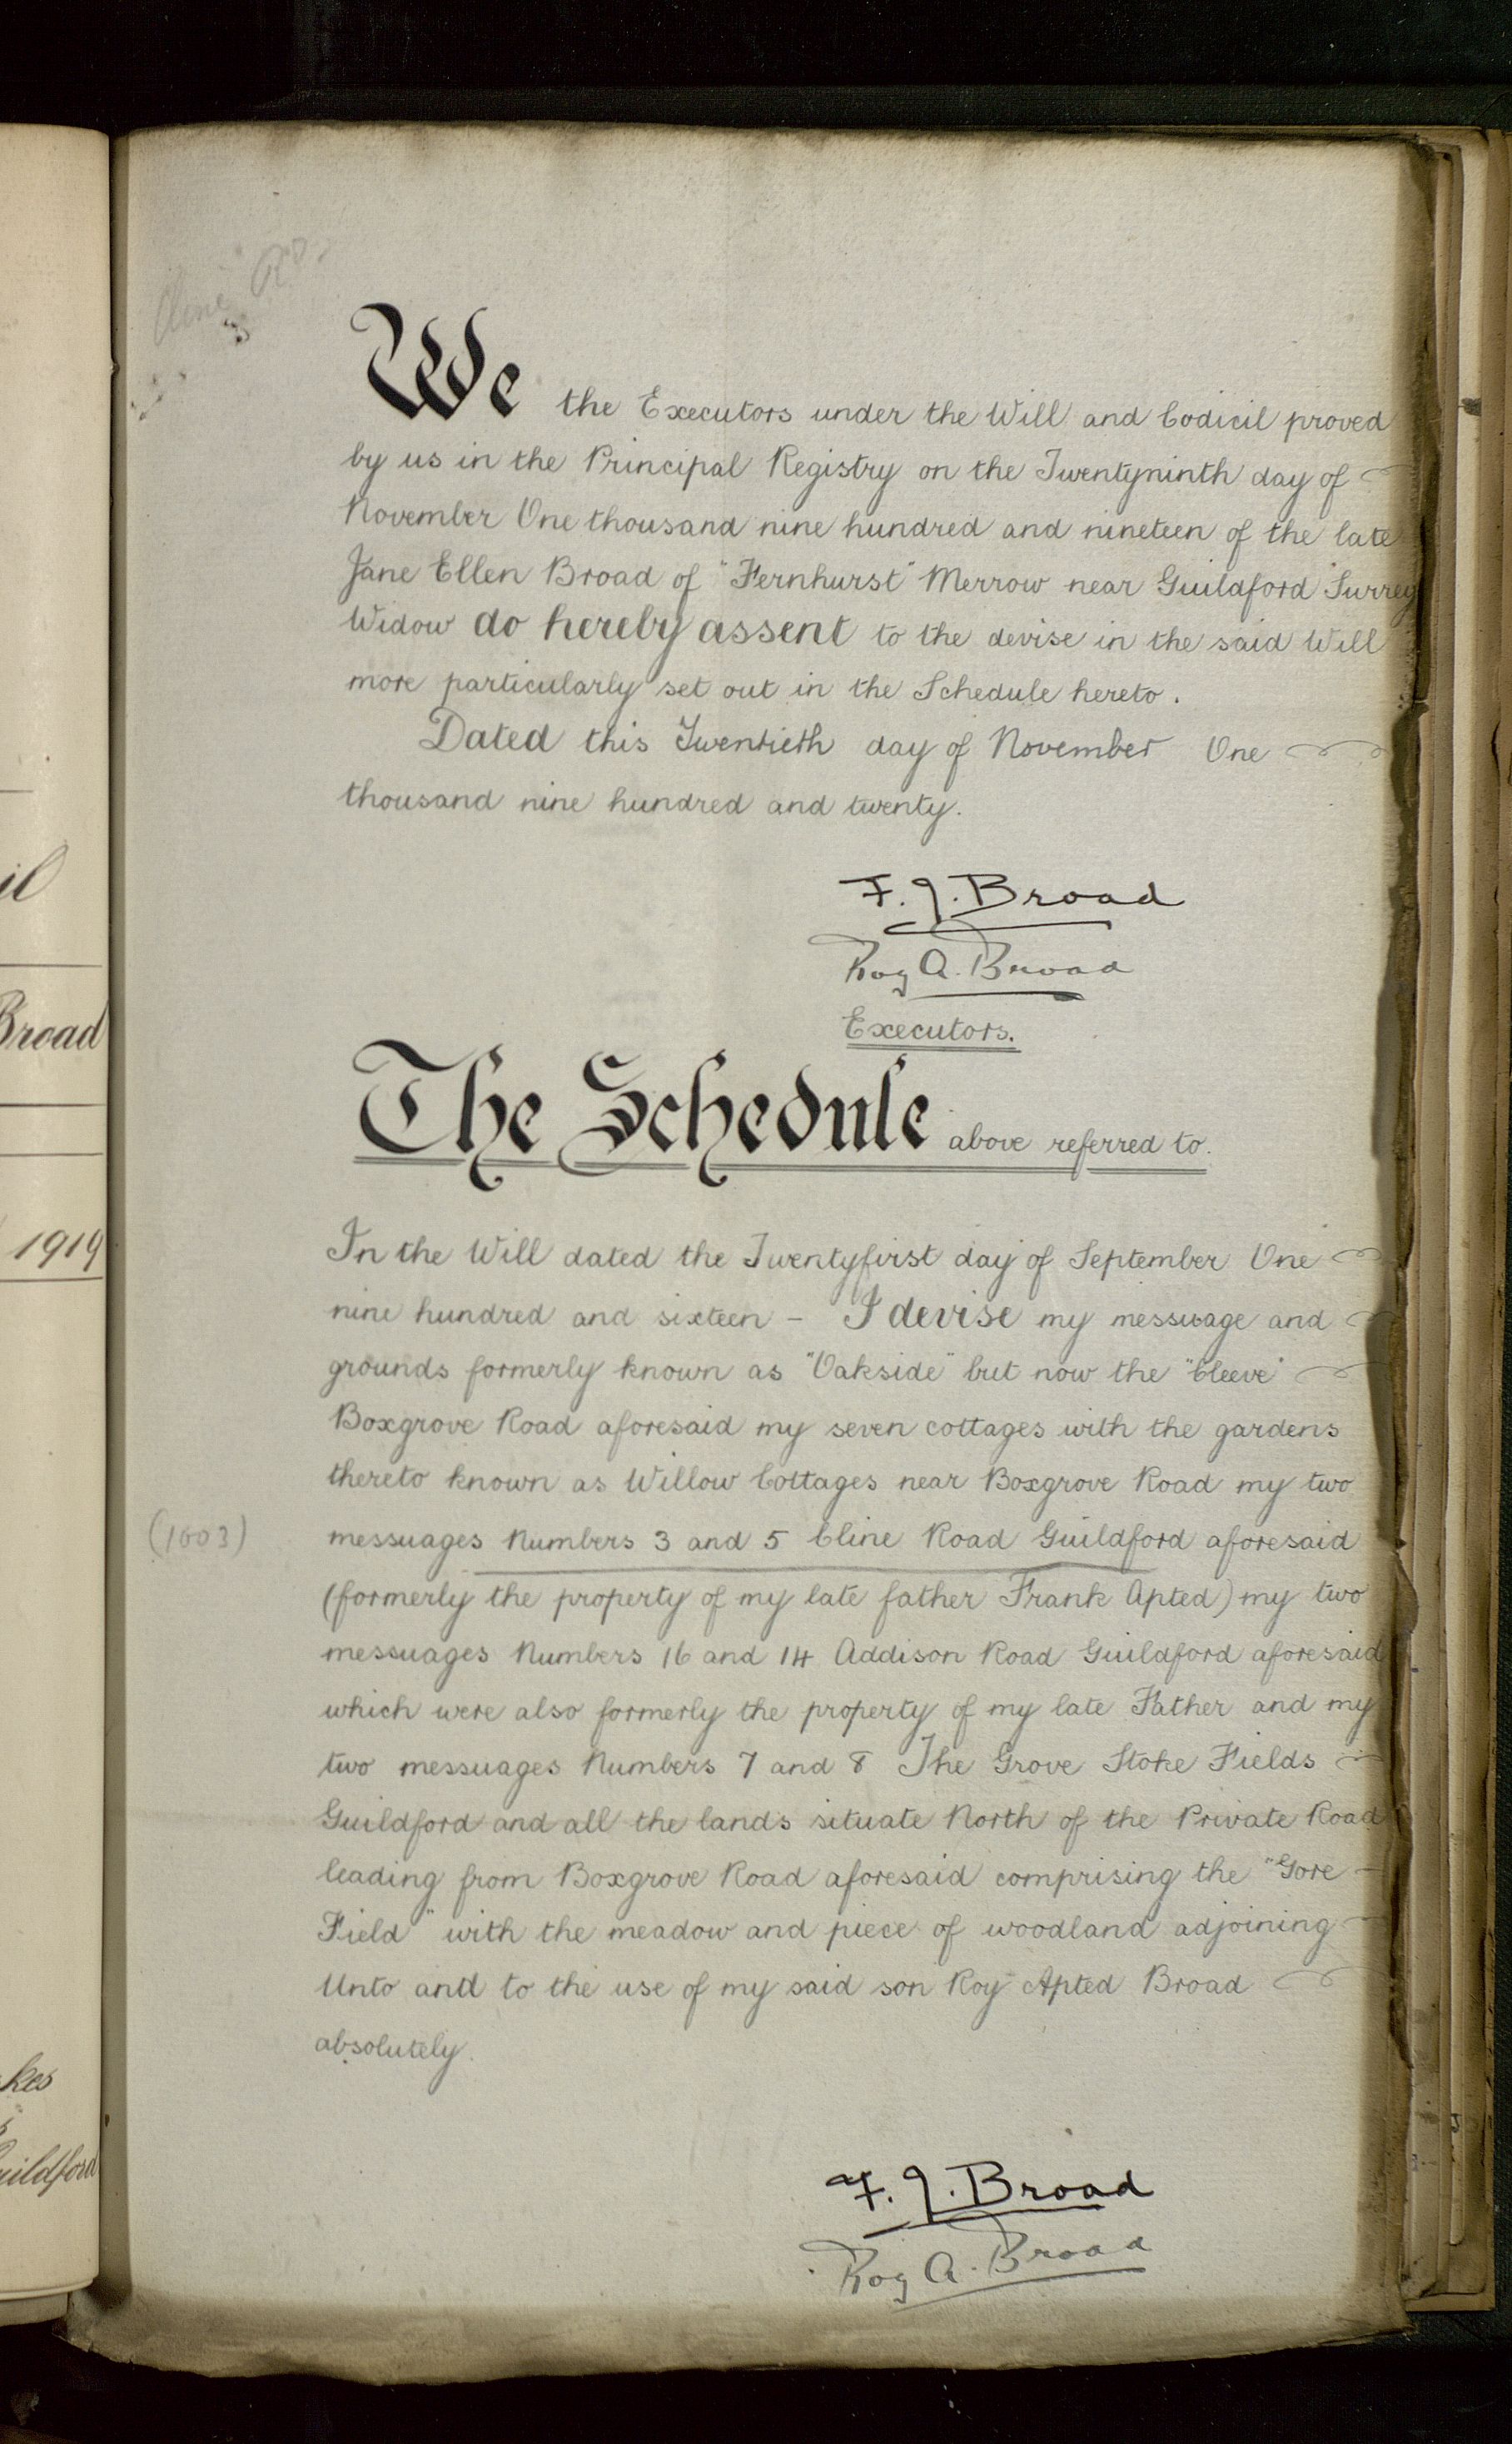 Cline Rd.
3
We the Executors under the Will and Codicil proved
by us in the Principal Registry on the Twentyninth day of
November One thousand nine hundred and nineteen of the late
Jane Ellen Broad of "Fernhurst" Merrow near Guildford Surrey
Widow do hereby assent to the devise in the said Will
more particularly set out in the Schedule hereto.
Dated this Twentieth day of November One
thousand nine hundred and twenty.
F. J. Broad
Roy A. Broad
Executors.
The Schedule above referred to.
In the Will dated the Twentyfirst day of September One
nine hundred and sixteen - I devise my messuage and
grounds formerly known as "Oakside" but now the "Cleeve"
Boxgrove Road aforesaid my seven cottages with the gardens
thereto known as Willow Cottages near Boxgrove Road my two
(1003)
messuages Numbers 3 and 5 Cline Road Guildford aforesaid
(formerly the property of my late father Frank Apted) my two
messuages Numbers 16 and 14 Addison Road Guildford aforesaid
which were also formerly the property of my late Father and my
two messuages Numbers 7 and 8 The Grove Stoke Fields
Guildford and all the lands situate North of the Private Road
leading from Boxgrove Road aforesaid comprising the "Gore
Field" with the meadow and piece of woodland adjoining
Unto and to the use of my said son Roy Apted Broad
absolutely.
F. J. Broad
Roy A. Broad
il
Broad
1919
kes
uildford